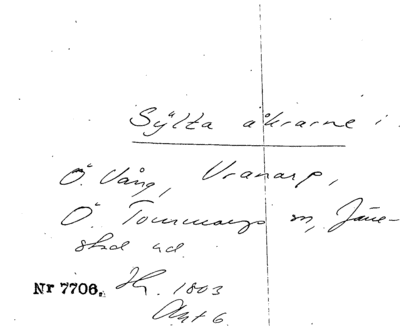 Sylta åkrarne i
Ö. Vång, Vranarp,
Ö. Tommarps sn, Järre-
stad hd.
Nr 7706. Hr. 1803
Akt 6